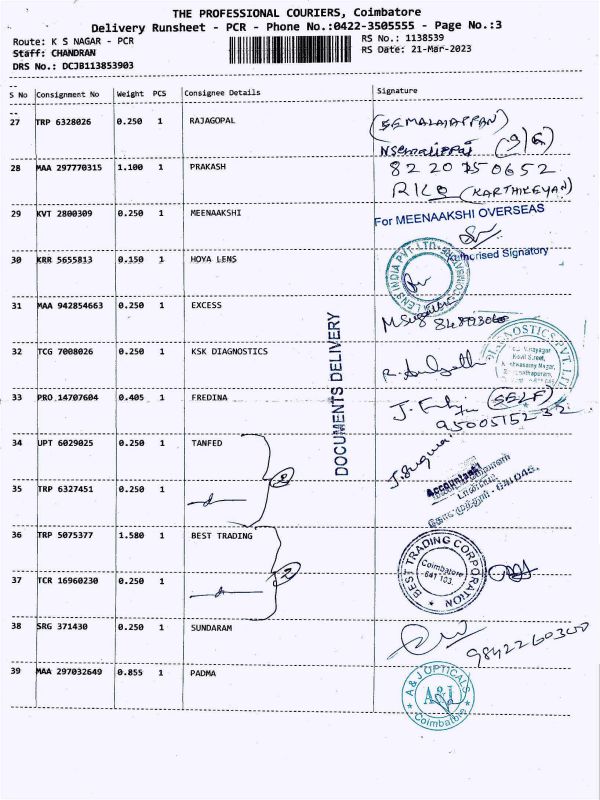 THE PROFESSIONAL COURIERS, Coimbatore
Delivery Runsheet - PCR - Phone No.:0422-3505555 - Page No.:3
Route: K S NAGAR - PCR
RS No.: 1138539
Staff: CHANDRAN
RS Date: 21-Mar-2023
DRS No.: DCJB113853903
S No Consignment No Weight PCS Consignee Details Signature
27 TRP 6328026 0.250 1 RAJAGOPAL
(SEMALAIAPPAN)
28 MAA 297770315 1.100 1 PRAKASH 8220750652
RIKO (KARTHIKEYAN)
29 KVT 2800309 0.250 1 MEENAAKSHI For MEENAAKSHI OVERSEAS
Authorised Signatory
30 KRR 5655813 0.150 1 HOYA LENS LENS INDIA PVT. LTD.
31 MAA 942854663 0.250 1 EXCESS
DOCUMENTS DELIVERY
32 TCG 7008026 0.250 1 KSK DIAGNOSTICS DIAGNOSTICS PVT. LTD.
33 PRO 14707604 0.405 1 FREDINA (SELF)
9500515232
34 UPT 6029025 0.250 1 TANFED
2
Accountant
35 TRP 6327451 0.250 1
36 TRP 5075377 1.580 1 BEST TRADING BEST TRADING CORPORATION
Coimbatore
-641 103.
2
37 TCR 16960230 0.250 1
38 SRG 371430 0.250 1 SUNDARAM 9842260300
39 MAA 297032649 0.855 1 PADMA A & J OPTICALS
A&J
Coimbatore